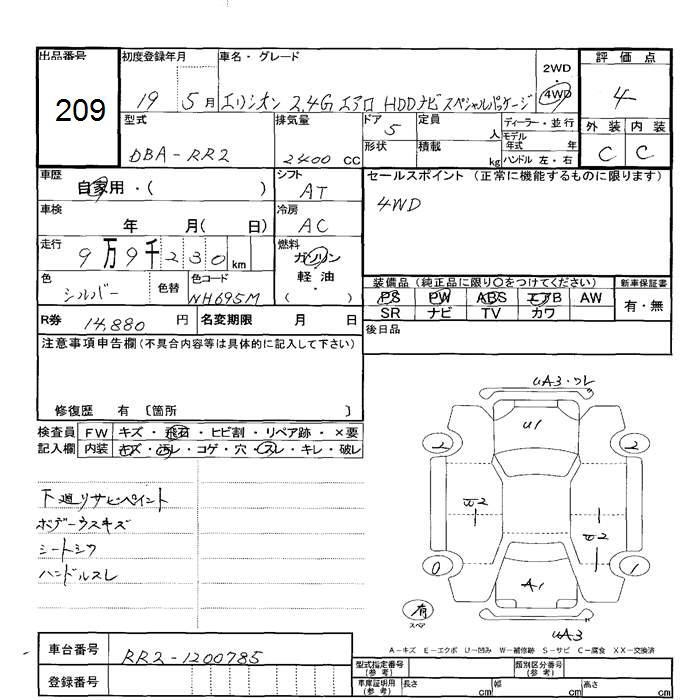 出品番号 初度登録年月 車名・グレード 2WD 4WD 評価点
209 19 5月 エリシオン 2.4G エアロ HDDナビスペシャルパッケージ 4
型式 排気量 ドア 5 定員 人 ディーラー・並行 外装 内装
DBA-RR2 2400 CC 形状 積載 kg モデル年式 年 C C
ハンドル 左・右
車歴 自家用・( ) シフト AT セールスポイント (正常に機能するものに限ります)
車検 年 月( 日) 冷房 AC 4WD
走行 9万9千230km 燃料 ガソリン
軽油・( )
色 シルバー 色替 色コード NH695M 装備品 (純正品に限り〇をつけてください) 新車保証書
PS PW ABS エアB AW 有・無
SR ナビ TV カワ
R券 14,880 円 名変期限 月 日 後日品
注意事項申告欄 (不具合内容等は具体的に記入して下さい)
修復歴 有 〔箇所 〕
検査員 FW キズ・飛石・ヒビ割・リペア跡・×要
記入欄 内装 キズ・汚レ・コゲ・穴・スレ・キレ・破レ
下廻リサビペイント
ボデーウスキズ
シートシワ
ハンドルスレ
UA3・ワレ
U1
2 2
W2
W2
0 1
A1
有
スペア
UA3
A-キズ E-エクボ U-凹み W-補修跡 S-サビ C-腐食 XX-交換済
車台番号 RR2-1200785
登録番号
型式指定番号(参考) 類別区分番号(参考)
車庫証明用(参考) 長さ cm 幅 cm 高さ cm